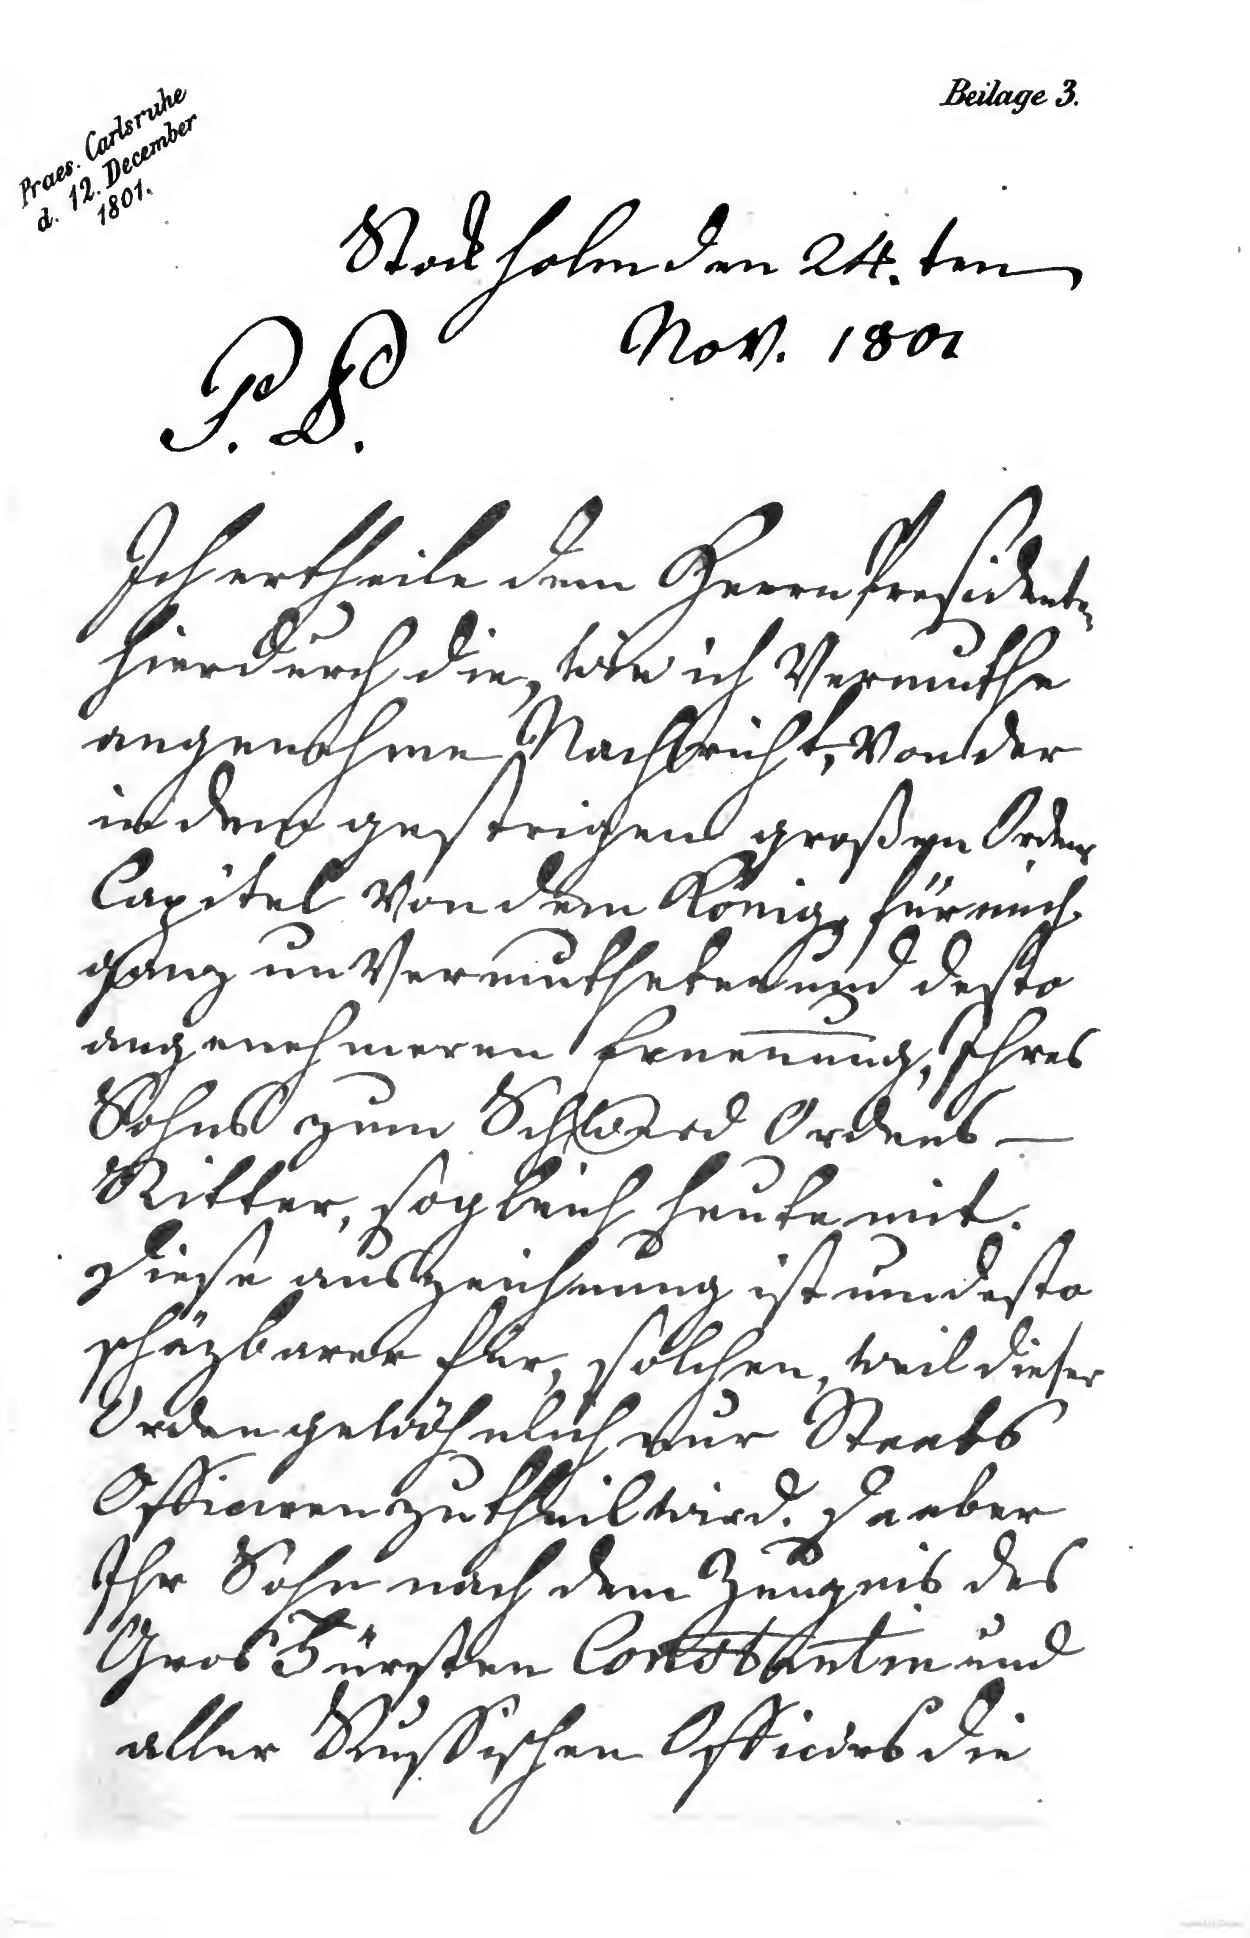 Beilage 3.
Praes. Carlsruhe
d. 12. December
1801.
Stockholm den 24.ten
Nov. 1801
P. S.
Ich ertheile dem Herrn Presidenten
hierdurch die, wie ich Vermuthe
angenehme Nachricht, Von der
in dem gestrigen großen Ordens
Capitel Von dem König, für mich
ganz unVermutheten und desto
angenehmeren Ernennung, Ihres
Sohns zum Schwerd Ordens —
Ritter, sogleich heute mit.
Diese auszeichnung ist um desto
schäzbarer für, solchen, weil dieser
Orden gewöhnlich nur Staabs
Officieren zutheil wird. Da aber
Ihr Sohn nach dem Zeugnis des
Gros Fürsten Constantin und
aller Russischen Officiers die